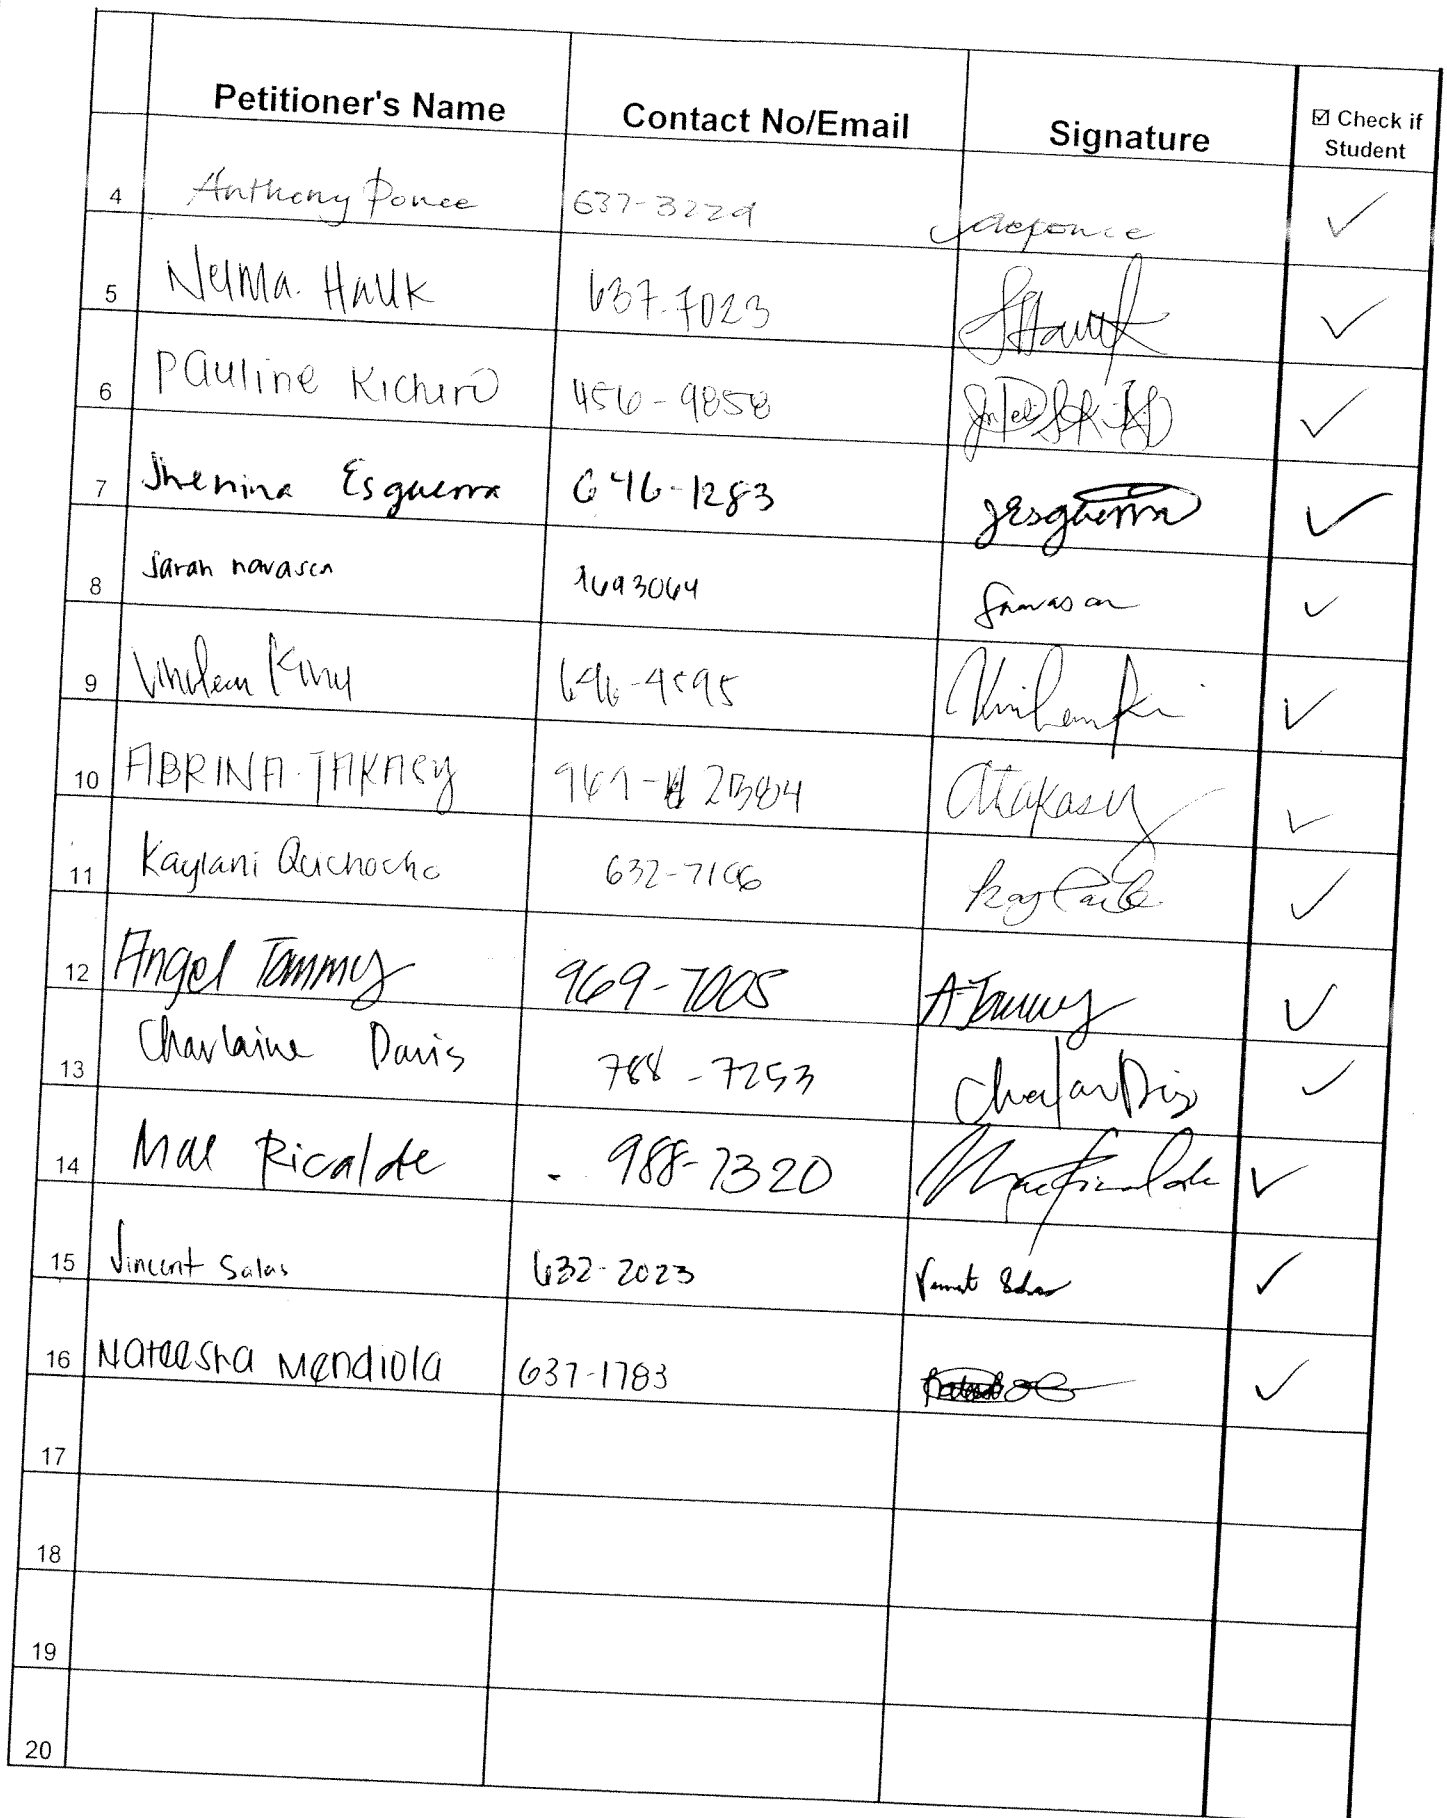 Petitioner's Name Contact No/Email Signature ☑ Check if Student
4 Anthony Ponce 637-3229 aeponce ✓
5 Nelma Hauk 637-7023 Hauk ✓
6 Pauline Kichiro 456-9858 ✓
7 Jhenina Esguerra 646-1283 JEsguerra ✓
8 Sarah navasca 1693064 Snavasca ✓
9 King 646-9595 ✓
10 ABRINA TAKASY 969-2384 ATakasy ✓
11 Kaylani Quichocho 632-7106 ✓
12 Angel Tammy 969-7005 A Tammy ✓
13 Charlaine Davis 788-7253 ✓
14 Mae Ricalde 988-7320 Mae Ricalde ✓
15 Vincent Salas 632-2023 Vincent Salas ✓
16 Nateesha Mendiola 637-1783 ✓
17
18
19
20